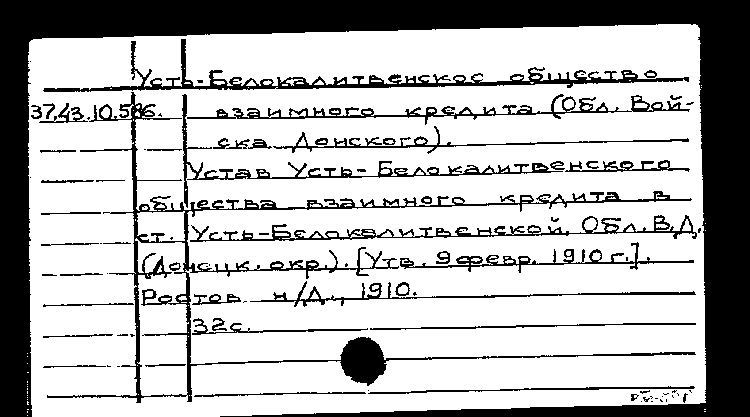 Усть-Белокалитвенское общество
37.43.10.586. взаимного кредита (Обл. Вой-
ска Донского).
Устав Усть-Белокалитвенского
общества взаимного кредита в
ст. Усть-Белокалитвенской, Обл. В.Д.
(Донецк. окр.). [Утв. 9 февр. 1910 г.].
Ростов н/Д., 1910.
32с.